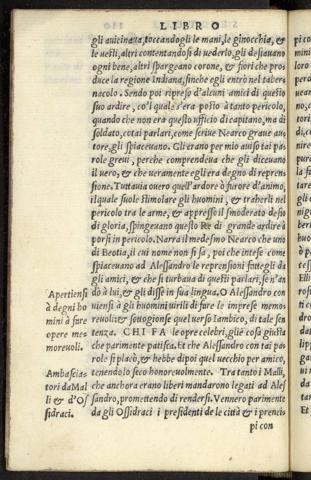 LIBRO
gli auicinata, toccandogli le mani, le ginocchia, &
le uesti, altri contentandosi di uederlo, gli desiauano
ogni bene, altri spargeano corone, & fiori che pro=
duce la regione Indiana, sinche egli entrò nel taber=
nacolo. Sendo poi ripreso d'alcuni amici di questo
suo ardire, co'l quale s'era posto à tanto pericolo,
quando che non era questo ufficio di capitano, ma di
soldato, cotai parlari, come scriue Nearco graue au=
tore, gli spiaceuano. Gli erano per mio auiso tai pa=
role greui, perche comprendeua che gli diceuano
il uero, & che ueramente egli era degno di repren=
sione. Tuttauia ouero quell'ardore ò furore d'animo,
il quale suole stimolare gli huomini, & traherli nel
pericolo tra le arme, & appresso il smoderato desio
di gloria, spingeuano questo Re di grande ardire à
porsi in pericolo. Narra il medesmo Nearco che uno
di Beotia, il cui nome non si sa, poi che intese come
spiaceuano ad Alessandro le reprensioni fattegli da
gli amici, & che si turbaua di questi parlari, se n'an
dò à lui, & gli disse in sua lingua. O Alessandro con
uiensi à gli huomini uirili di fare le imprese memo=
reuoli: & sottogionse quel uerso Iambico, di tale sen
tenza. CHI FA le opre celebri, gliè cosa giusta
che parimente patisca. Et che Alessandro con tai pa=
role si placò, & hebbe dipoi quel uecchio per amico,
tenendolo seco honoreuolmente. Tra tanto i Malli,
che anchora erano liberi mandarono legati ad Ales
sandro, promettendo di rendersi. Vennero parimente
da gli Ossidraci i presidenti de le città & i prencis
pi con
Apertiensi
à degni ho
mini à fare
opere mes
moreuoli.
Ambascia=
tori da Mal
li & d'Os
sidraci.